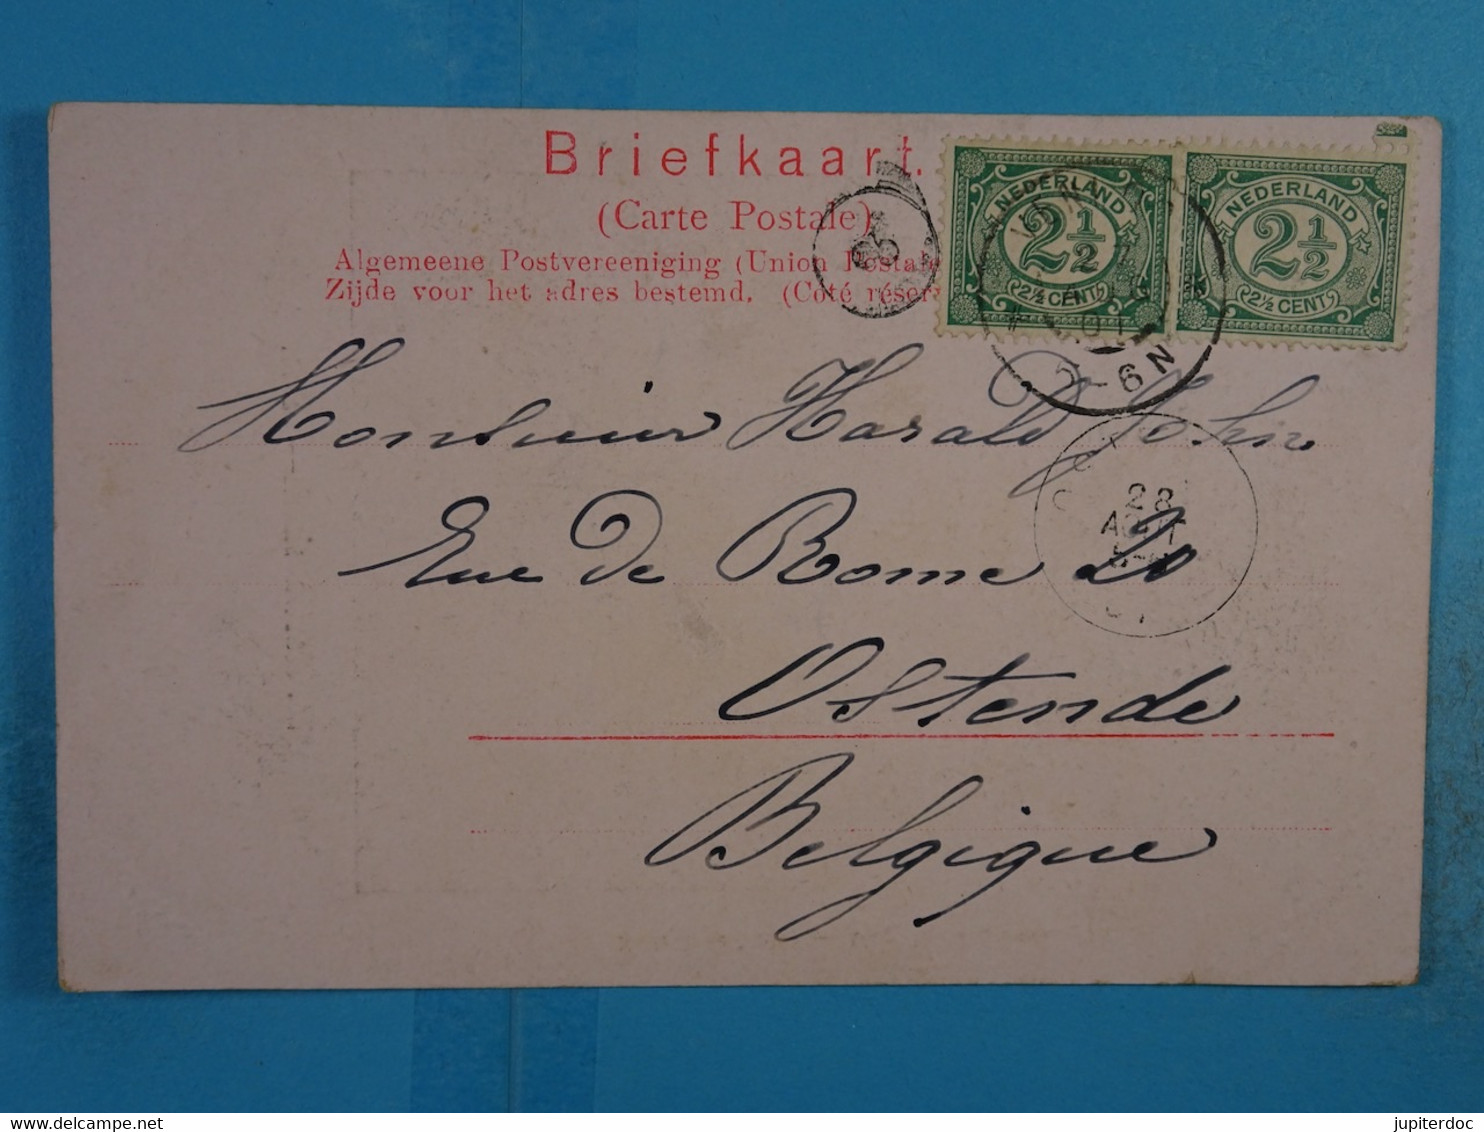 Briefkaart.
(Carte Postale)
Algemeene Postvereeniging (Union Postale
Zijde voor het adres bestemd. (Côté réserv
NEDERLAND
2½
2½ CENT
NEDERLAND
2½
2½ CENT
5-6N
28
AOUT
Monsieur Harald John
Rue de Rome 20
Ostende
Belgique
delcampe.net
jupiterdoc